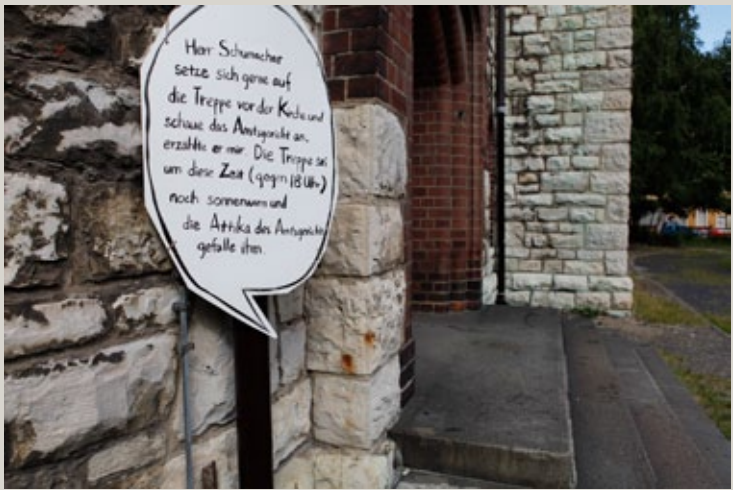 Herr Schumacher
setze sich gerne auf
die Treppe vor der Kirche und
schaue das Amtsgericht an,
erzählte er mir. Die Treppe sei
um diese Zeit (gegen 18 Uhr)
noch sonnenwarm und
die Attika des Amtsgerichts
gefalle ihm.